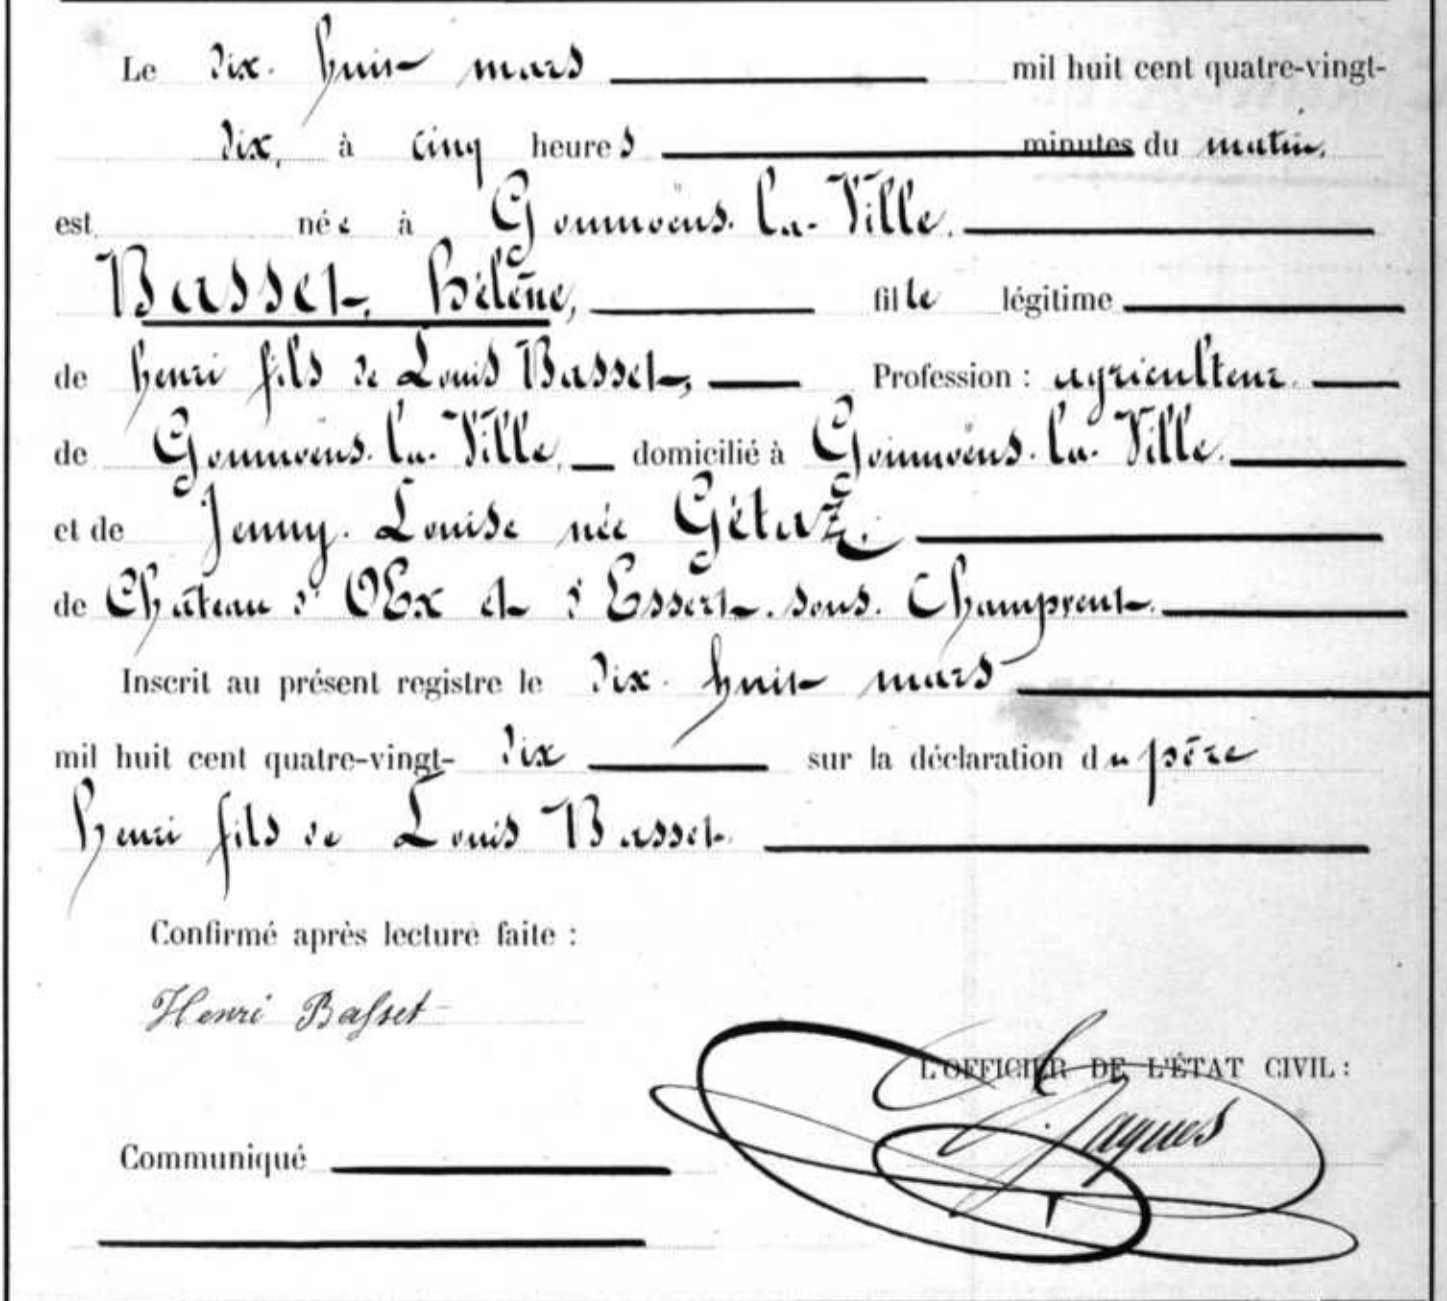 Le dix-huit mars mil huit cent quatre-vingt-
dix, à cinq heures minutes du matin,
est née à Goumoëns-la-Ville.
Basset, Hélène, fille légitime
de Henri fils de Louis Basset, Profession : agriculteur.
de Goumoëns-la-Ville, domicilié à Goumoëns-la-Ville.
et de Jenny-Louise née Gétaz,
de Château d'OEx et d'Essert-sous-Champvent.
Inscrit au présent registre le dix-huit mars
mil huit cent quatre-vingt-dix sur la déclaration du père
Henri fils de Louis Basset.
Confirmé après lecture faite :
Henri Basset
L'OFFICIER DE L'ÉTAT CIVIL :
Jaques
Communiqué